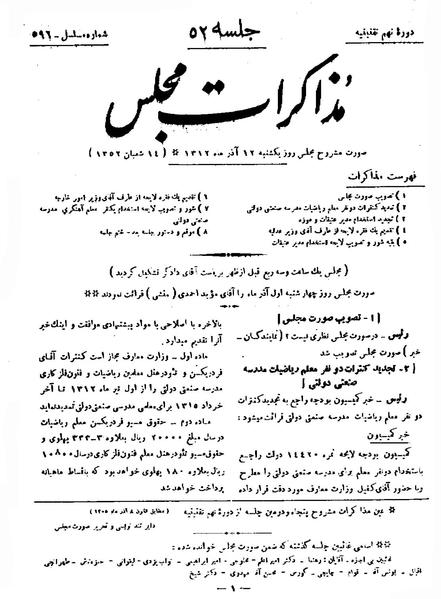 دورهٔ نهم تقنینیه
جلسه ۵۲
شماره مسلسل - ۵۹۶
مذاکرات مجلس
صورت مشروح مجلس روز یکشنبه ۱۲ آذر ماه ۱۳۱۲ * (۱۴ شعبان ۱۳۵۲)
فهرست مذاکرات
۱) تصویب صورت مجلس
۲) تمدید کنترات دو نفر معلم ریاضیات مدرسه صنعتی دولتی
۳) تجدید استخدام مدیر عتیقات و موزه
۴) تقدیم یک فقره لایحه از طرف آقای وزیر عدلیه
۵) بقیه شور و تصویب لایحه استخدام مدیر عتیقات
۶) تقدیم یک فقره لایحه از طرف آقای وزیر امور خارجه
۷) شور و تصویب لایحه استخدام یکنفر معلم آهنگری مدرسه
صنعتی دولتی
۸) موقع و دستور جلسه بعد - ختم جلسه
(مجلس یک ساعت وسه ربع قبل از ظهر بریاست آقای دادگر تشکیل گردید)
صورت مجلس روز چهارشنبه اول آذر ماه را آقای مؤید احمدی (منشی) قرائت نمودند **
[۱- تصویب صورت مجلس]
رئیس - در صورت مجلس نظری نیست؟ (نمایندگان -
خیر) تصویب شد
[۲- تجدید کنترات دو نفر معلم ریاضیات مدرسه
صنعتی دولتی]
رئیس - خبر کمیسیون بودجه راجع به تجدید کنترات
دو نفر معلم ریاضیات مدرسه صنعتی دولتی قرائت میشود:
خبر کمیسیون
کمیسیون بودجه لایحه نمره ۱۴۴۲۰ دولت راجع
باستخدام دو نفر معلم برای مدرسه صنعتی دولتی را مطرح
و با حضور آقای کفیل وزارت معارف مورد دقت قرار داده
بالاخره با اصلاحی با مواد پیشنهادی موافقت و اینک خبر
آنرا تقدیم میدارد.
ماده اول - وزارت معارف مجاز است کنترات آقای
فردریکسن و تئودرهنل معلمین ریاضیات و فنون فلز کاری
مدرسه صنعتی دولتی را از اول تیر ماه ۱۳۱۲ تا آخر
خرداد ۱۳۱۵ برای معلمی مدرسی صنعتی دولتی تمدید نماید
ماده دوم - حقوق مسیو فردریکسن معلم ریاضیات
در سال مبلغ ۲۰۰۰۰ ریال بعلاوه ۳۳۳-۳ پهلوی و
حقوق مسیو تئودرهنل معلم فنون فلز کاری در سال ۱۰۸۰۰
ریال بعلاوه ۱۸۰ پهلوی خواهد بود که باقساط ماهیانه
پرداخت خواهد شد
* عین مذاکرات مشروح پنجاه و دومین جلسه از دورهٔ نهم تقنینیه (مطابق قانون ۸ آذر ماه ۱۳۰۵)
دایره تند نویسی و تحریر صورت مجلس
** اسامی غائبین جلسه گذشته که ضمن صورت مجلس خوانده شده:
غائبین بی اجازه - آقایان: رهنما - دکتر امیر اعلم - مؤتمنی - امیر ابراهیمی - نواب یزدی - لیقوانی - طهرانچی
اقبال - یونس آقا - قوام - چایچی - گورس - محسن آقا مهدوی - دکتر شیخ
- ۱ -